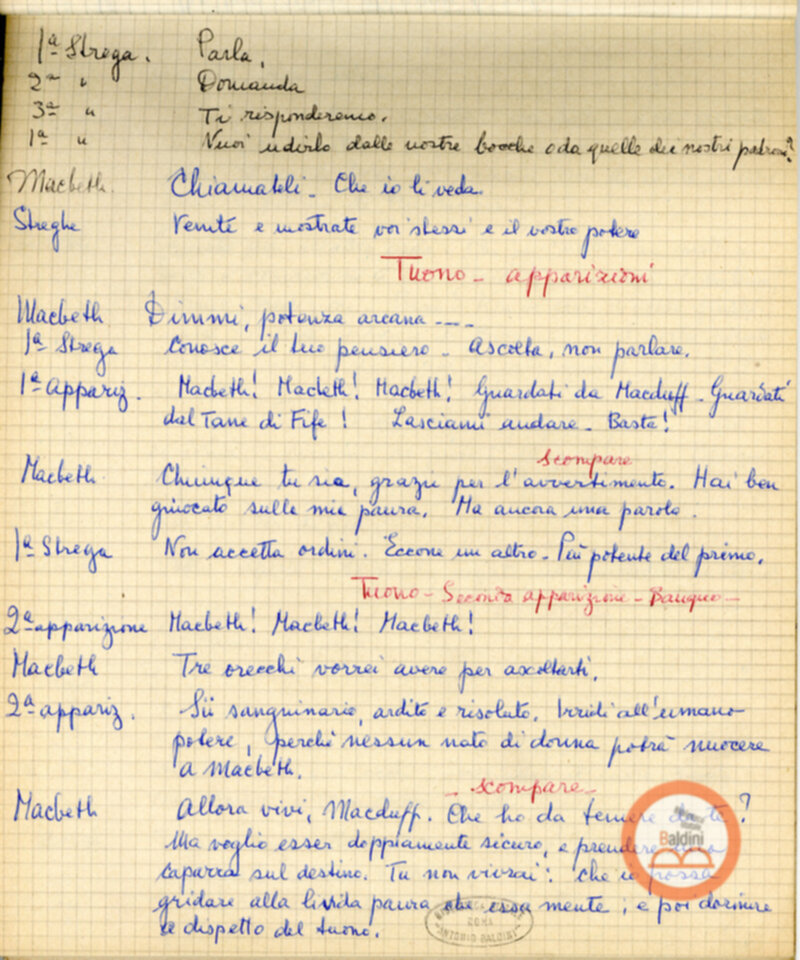 1ª Strega. Parla.
2ª " Domanda
3ª " Ti risponderemo.
1ª " Vuoi udirlo dalle nostre bocche o da quelle dei nostri padroni?
Macbeth. Chiamateli - Che io li veda.
Streghe Venite e mostrate voi stessi e il vostro potere
Tuono - apparizioni
Macbeth Dimmi, potenza arcana ----
1ª Strega Conosce il tuo pensiero - Ascolta, non parlare.
1ª appariz. Macbeth! Macbeth! Macbeth! Guardati da Macduff - Guardati
dal Tane di Fife! Lasciami andare - Basta!
scompare
Macbeth Chiunque tu sia, grazie per l'avvertimento. Hai ben
giuocato sulla mia paura. Ma ancora una parola.
1ª Strega Non accetta ordini. Eccone un altro - Più potente del primo.
Tuono - Seconda apparizione - Banquo -
2ª apparizione Macbeth! Macbeth! Macbeth!
Macbeth Tre orecchi vorrei avere per ascoltarti.
2ª appariz. Sii sanguinario, ardito e risoluto. Irridi all'umano
potere, perchè nessun nato di donna potrà nuocere
a Macbeth.
- scompare -
Macbeth Allora vivi, Macduff. Che ho da temere da te?
Ma voglio esser doppiamente sicuro, e prendere
caparra sul destino. Tu non vivrai: che io possa
gridare alla livida paura che essa mente; e poi dormire
a dispetto del tuono.
Baldini
ROMA
ANTONIO BALDINI